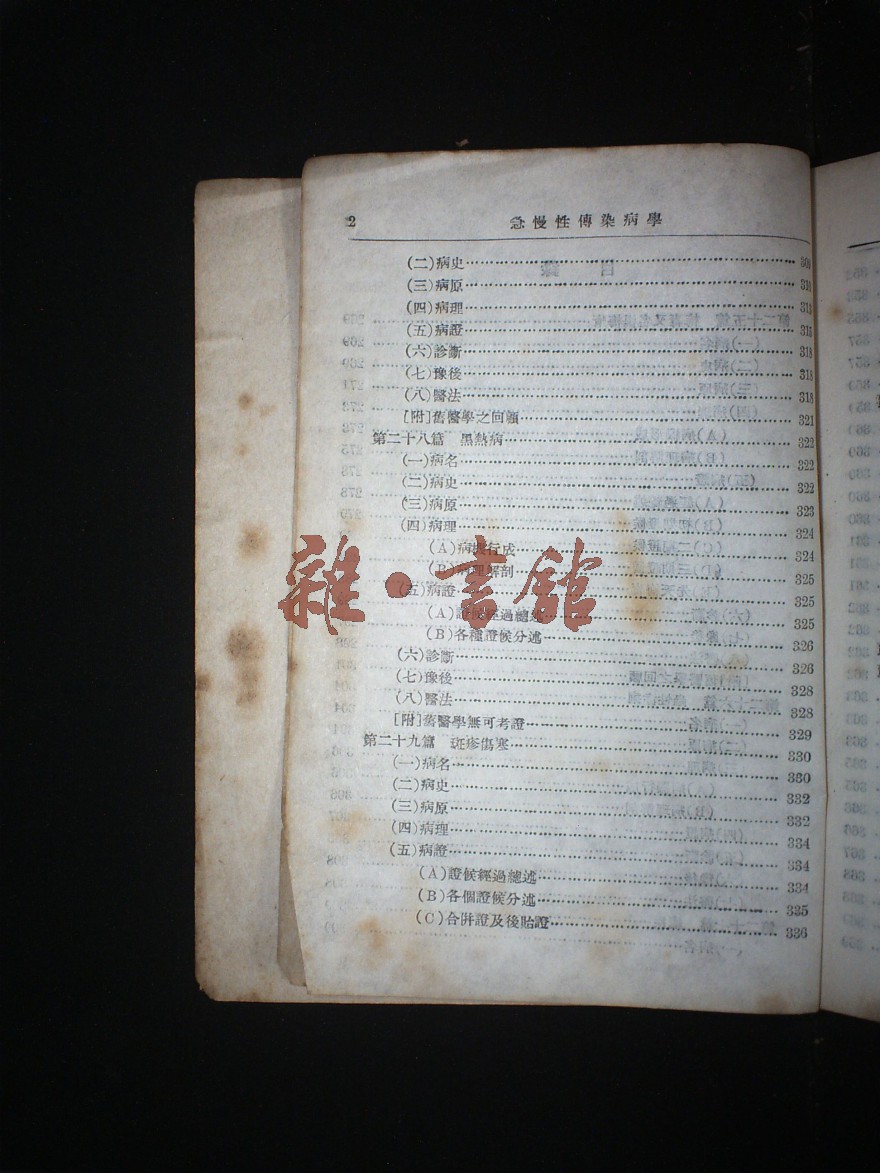 2 急慢性傳染病學
(二)病史 308
(三)病原 310
(四)病理 312
(五)病證 315
(六)診斷 318
(七)豫後 318
(八)醫法 318
[附]舊醫學之回顧 321
第二十八篇 黑熱病 322
(一)病名 322
(二)病史 322
(三)病原 323
(四)病理 324
(A)病機行成 324
(B)病理解剖 325
(五)病證 325
(A)證候經過總述 325
(B)各種證候分述 326
(六)診斷 326
(七)豫後 328
(八)醫法 328
[附]舊醫學無可考證 329
第二十九篇 斑疹傷寒 330
(一)病名 330
(二)病史 332
(三)病原 332
(四)病理 334
(五)病證 334
(A)證候經過總述 334
(B)各個證候分述 335
(C)合併證及後貽證 336
雜·書館